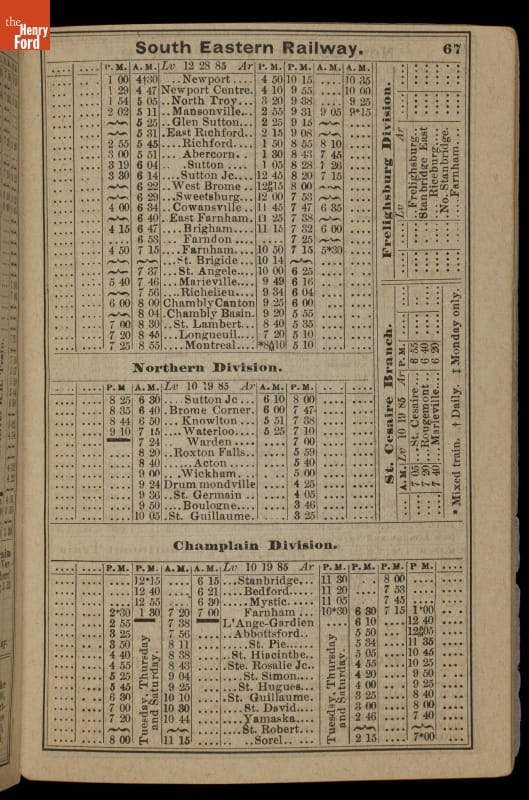 the
Henry
Ford
South Eastern Railway. 67
P. M. A. M. Lv 12 28 85 Ar P. M. P. M. A. M. A. M.
1 00 4†30 Newport 4 50 10 15 10 35
1 29 4 47 Newport Centre. 4 10 9 55 10 00
1 54 5 05 North Troy 3 20 9 38 9 25
2 02 5 11 Mansonville 2 55 9 31 9 05 9*15
5 25 Glen Sutton 2 25 9 15
5 31 East Richford 2 15 9 08
2 55 5 45 Richford 1 50 8 55 8 10
3 00 5 51 Abercorn 1 30 8 43 7 45
3 19 6 04 Sutton 1 05 8 28 7 26
3 30 6 14 Sutton Jc 12 45 8 20 7 15
6 22 West Brome 8 00
6 29 Sweetsburg 12 00 7 53
4 00 6 34 Cowansville 11 45 7 47 6 35
6 40 East Farnham 11 25 7 38
4 15 6 47 Brigham 11 15 7 32 6 00
6 53 Farndon 7 25
4 50 7 15 Farnham 10 50 7 15 5*30
St. Brigide 10 14
7 37 St. Angele 10 00 6 25
5 40 7 46 Marieville 9 49 6 16
7 56 Richelieu 9 34 6 04
6 00 8 00 Chambly Canton 9 25 6 00
8 04 Chambly Basin. 9 20 5 55
7 00 8 30 St. Lambert 8 40 5 35
7 20 8 45 Longueuil 7 20 5 10
7 25 8 55 Montreal 5 10
Northern Division.
P. M A. M. Lv 10 19 85 Ar A. M. P. M.
8 25 6 30 Sutton Jc 6 10 8 00
8 35 6 40 Brome Corner. 6 00 7 47
8 44 6 50 Knowlton 5 51 7 38
9 10 7 15 Waterloo 5 25 7 10
7 24 Warden 7 00
8 20 Roxton Falls 5 59
8 40 Acton 5 40
9 00 Wickham 5 00
9 24 Drummondville 4 25
9 36 St. Germain 4 05
9 50 Boulogne 3 46
10 05 St. Guillaume 3 25
Frelighsburg Division.
Lv Ar
Frelighsburg
Stanbridge East
Riceburg
No. Stanbridge.
Farnham
St. Cesaire Branch.
A. M. Lv 10 19 85 Ar P. M.
7 05 St. Cesaire 6 55
7 20 Rougemont 6 40
7 40 Marieville 6 20
* Mixed train. † Daily. ‡ Monday only.
Champlain Division.
P. M. P. M. A. M. A. M. Lv 10 19 85 Ar P. M. P. M. P. M. P M.
12*15 6 15 Stanbridge 11 30 8 00
12 40 6 21 Bedford 11 20 7 53
12 55 6 30 Mystic 11 05 7 45
2*30 1 30 7 20 7 00 Farnham 10*30 6 30 7 15 1*00
2 55 7 38 L'Ange-Gardien 6 10 12 40
3 25 7 56 Abbottsford 5 50
3 50 8 11 St. Pie 5 34 11 35
4 40 8 38 St. Hiacinthe 5 05 10 45
4 55 8 43 Ste. Rosalie Jc 4 55 10 25
5 25 9 04 St. Simon 4 20 9 50
5 45 9 25 St. Hugues 4 00 9 25
6 30 10 10 St. Guillaume 3 25 8 40
7 00 10 30 St. David 3 00 8 00
7 20 10 44 Yamaska 2 46 7 40
St. Robert
8 00 11 15 Sorel 2 15 7*00
Tuesday, Thursday and Saturday.
Tuesday, Thursday and Saturday.